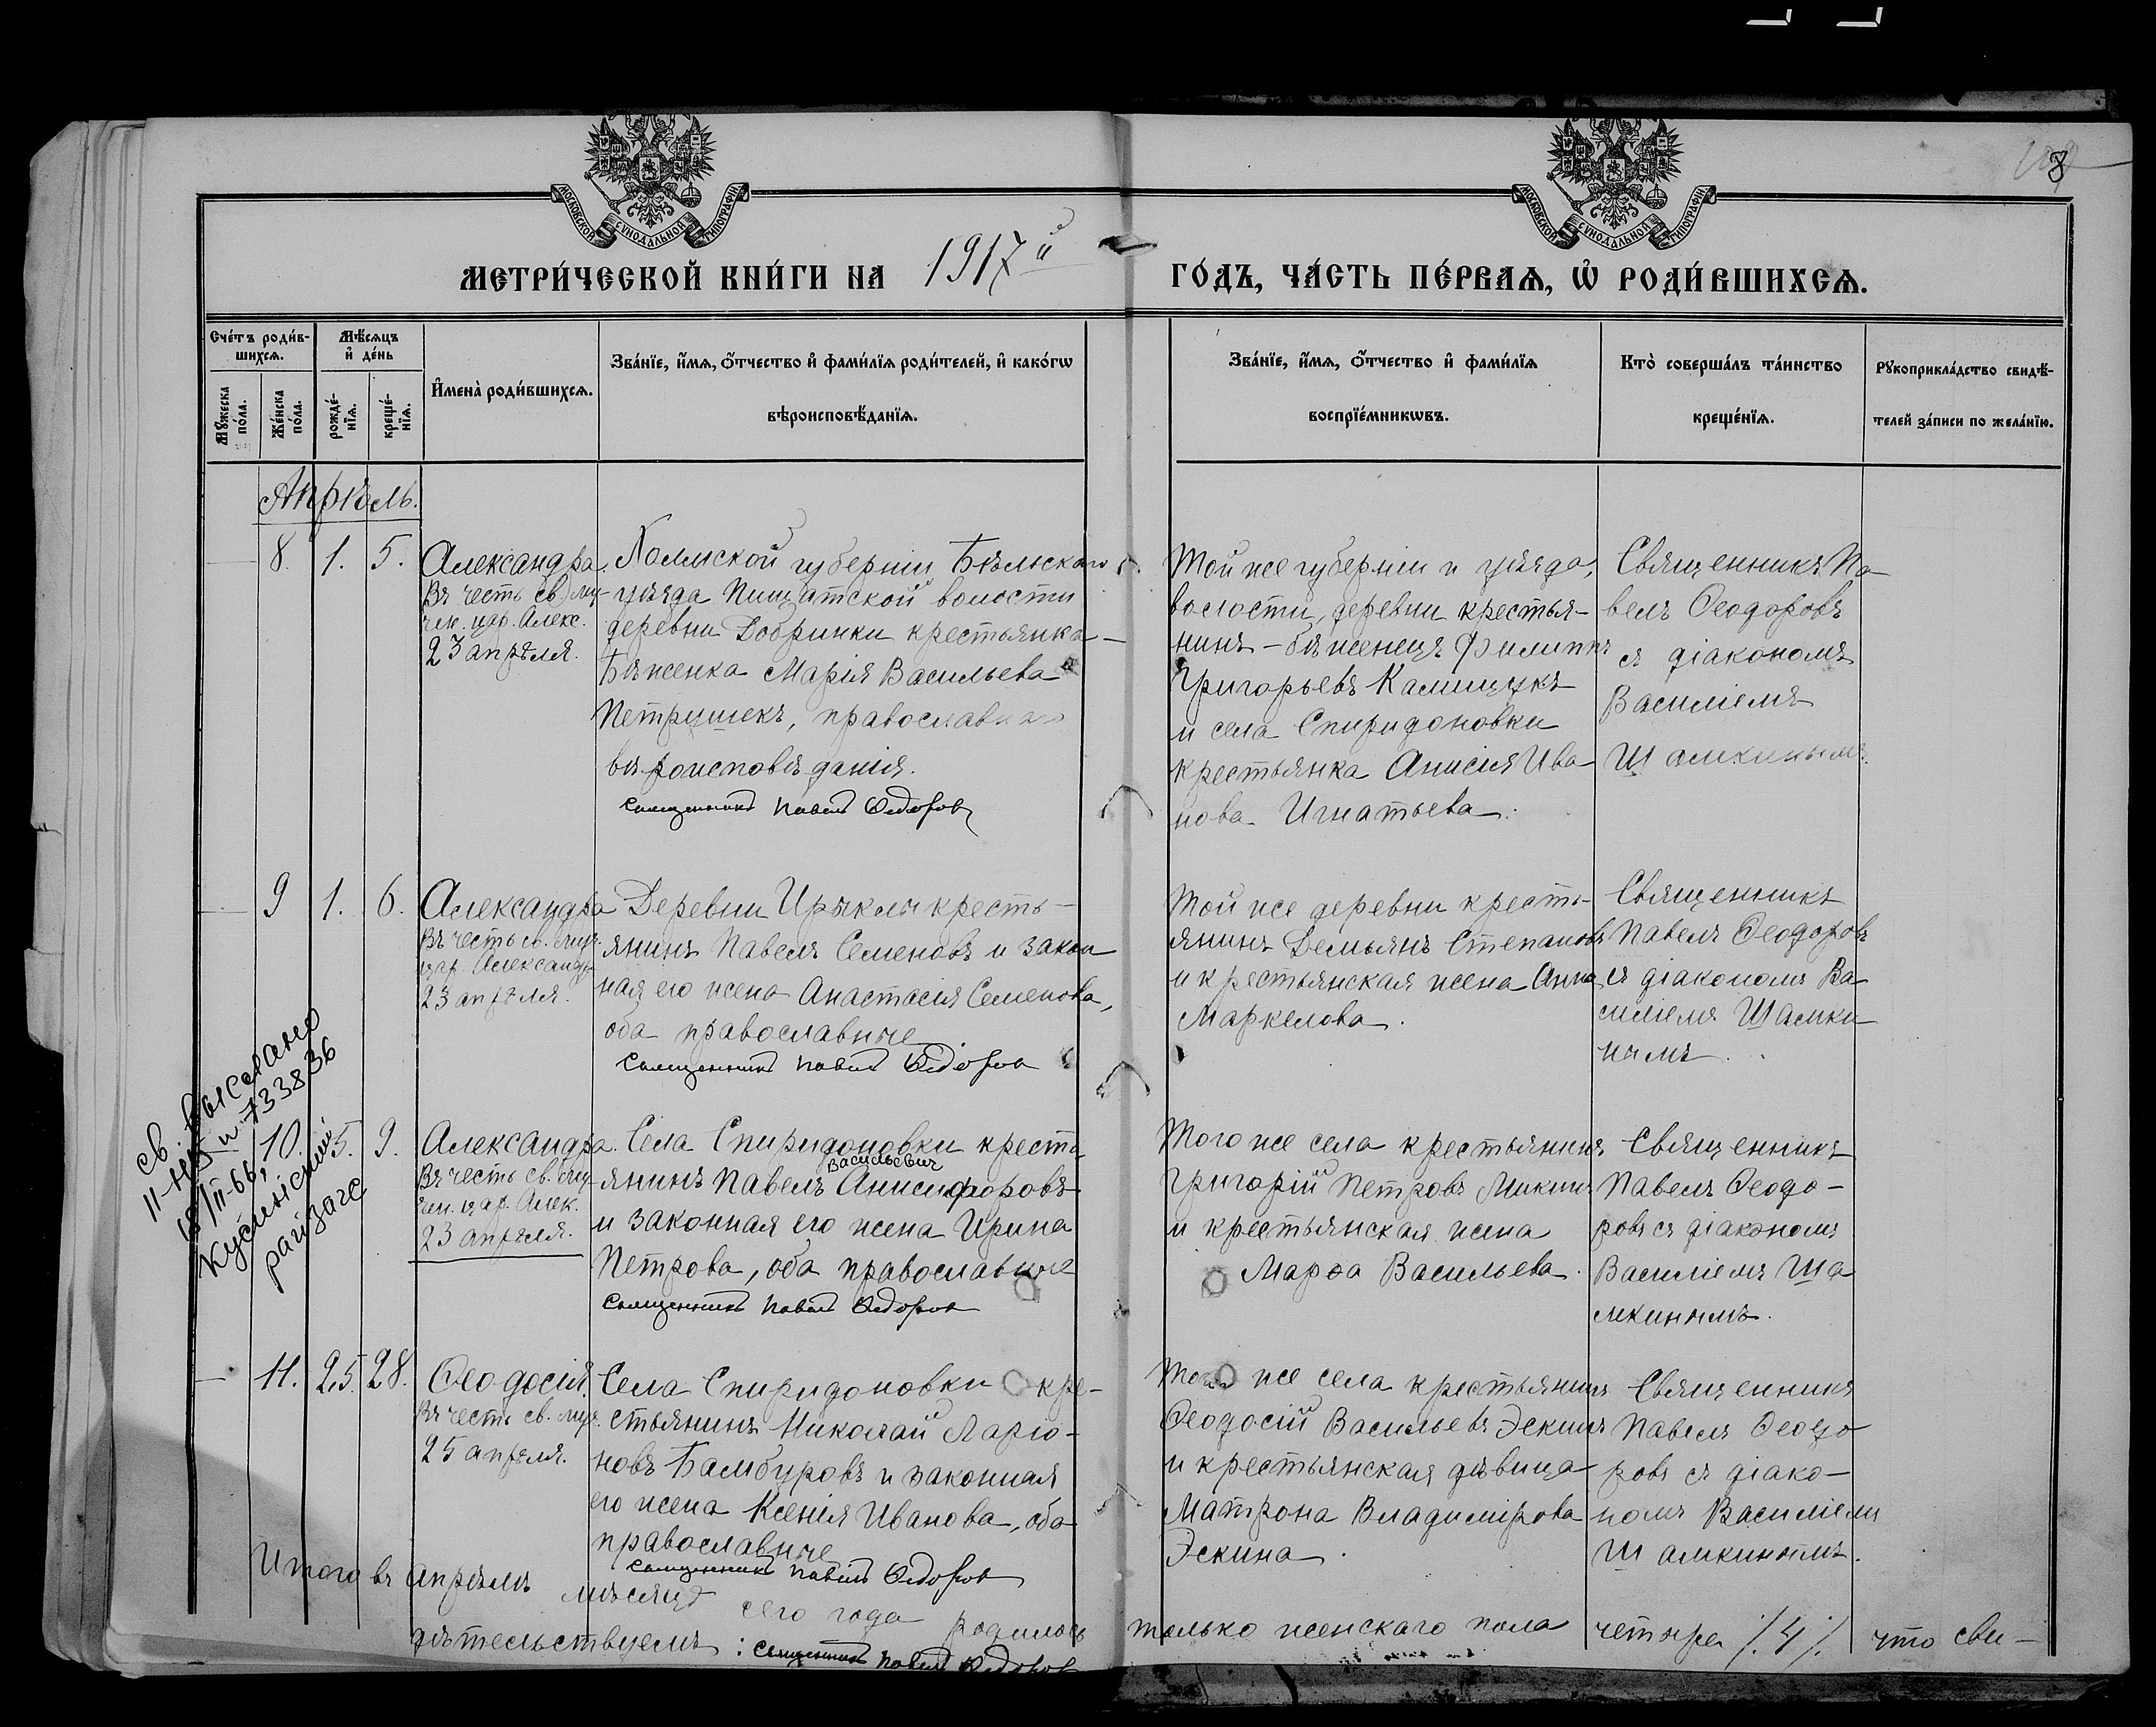 МОСКОВСКОЙ СУНОДАЛЬНОЙ ТИПОГРАФІИ
МОСКОВСКОЙ СУНОДАЛЬНОЙ ТИПОГРАФІИ
8
МЕТРИ́ЧЕСКОЙ КНИ́ГИ НА 1917й ГО́ДЪ, ЧА́СТЬ ПЕ́РВАѦ, Ѡ РОДИ́ВШИХСѦ.
Сче́тъ роди́в-
шихсѧ.
Мѣ́сѧцъ
и҆ де́нь
Мꙋ́жеска
по́ла.
Же́нска
по́ла.
рожде́-
нїѧ.
креще́-
нїѧ.
И҆мена̀ роди́вшихсѧ.
Зва́нїе, и҆́мѧ, ѻ҆́тчество и҆ фами́лїѧ роди́телей, и҆ како́гѡ
вѣроисповѣ́данїѧ.
Зва́нїе, и҆́мѧ, ѻ҆́тчество и҆ фами́лїѧ
воспрїе́мникѡвъ.
Кто̀ соверша́лъ та́инство
креще́нїѧ.
Рꙋкоприкла́дство свидѣ́-
телей за́писи по жела́нїю.
Апрѣль.
8. 1. 5.
Александра.
Въ честь св. му-
чен. цар. Алекс.
23 апрѣля.
Холмской губерніи Бѣльскаго
уѣзда Пищатской волости
деревни Добринки крестьянка-
бѣженка Марія Васильева
Петрушекъ, православна
вѣроисповѣданія.
Священникъ Павелъ Ѳедоровъ
Той же губерніи и уѣзда,
волости, деревни крестья-
нинъ-бѣженецъ Филиппъ
Григорьевъ Калищукъ
и села Спиридоновки
крестьянка Анисія Ива
нова Игнатьева.
Священникъ Па-
велъ Ѳеодоровъ
съ діакономъ
Василіемъ
Шалкинымъ.
9 1. 6.
Александра
Въ честь св. муч.
цар. Александр
23 апрѣля.
Деревни Ирыклы кресть-
янинъ Павелъ Семеновъ и закон
ная его жена Анастасія Семенова,
оба православные
Священникъ Павелъ Ѳедоровъ
Той же деревни кресть-
янинъ Демьянъ Степановъ
и крестьянская жена Анна
Маркелова.
Священникъ
Павелъ Ѳеодоровъ
съ діакономъ Ва
силіемъ Шалки
нымъ.
св. выслано
II-НЮ №733836
18/II-66,
Кусинский
райзагс
10. 5. 9.
Александра.
Въ честь св. му-
чен. цар. Алек.
23 апрѣля.
Села Спиридоновки кресть
Васильевич
янинъ Павелъ Анисифоровъ
и законная его жена Ирина
Петрова, оба православные
Священникъ Павелъ Ѳедоровъ
Того же села крестьянинъ
Григорій Петровъ Микинъ
и крестьянская жена
Марѳа Васильева.
Священникъ
Павелъ Ѳеодо-
ровъ съ діакономъ
Василіемъ Ша
лкинымъ.
11. 25. 28.
Ѳеодосія.
Въ честь св. муч.
25 апрѣля.
Села Спиридоновки кре-
стьянинъ Николай Ларіо-
новъ Бамбуровъ и законная
его жена Ксенія Иванова, оба
православные
Священникъ Павелъ Ѳедоровъ
Того же села крестьянинъ
Ѳеодосій Васильевъ Эскинъ
и крестьянская дѣвица
Матрона Владимірова
Эскина.
Священникъ
Павелъ Ѳеодо
ровъ съ діако-
номъ Василіемъ
Шалкинымъ.
Итого въ Апрѣлѣ мѣсяцѣ сего года родилось только женскаго пола четыре /.4/. что сви-
дѣтельствуемъ: Священникъ Павелъ Ѳедоровъ